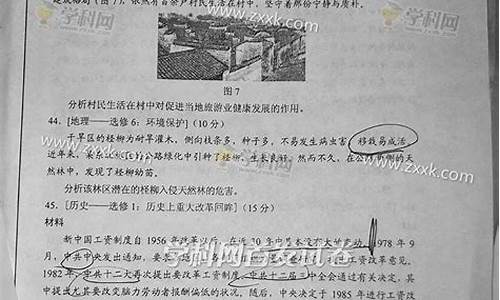 学科网
www.zxxk.com
图7
分析村民生活在村中对促进当地旅游业健康发展的作用。
44. [地理——选修 6：环境保护]（10分）
干旱区的柽柳为耐旱灌木，侧向枝条多，种子多，不易发生病虫害，移栽易成活。
近年来，某
路绿化中引种了柽柳，生长良好。然而不久，在公
侧的天
然林中，发现了柽柳幼苗。
分析该林区潜在的柽柳入侵天然林的危害。
45. [历史——选修 1：历史上重大改革回眸]（15分）
材料
新中国工资制度自 1956 年改革以后，在近 30 年中基本没有大的变动。1978 年 9
月，中共中央发出通知，要
工资改革意见。
1982年，中共十二大再次提出要改革工资制度。中共十二届三中全会通过有关决定，其
中提出尤其要改变脑力劳动者报酬偏低的状况。随后，中央决定于 1985 年进行工资改
学科网首发试卷